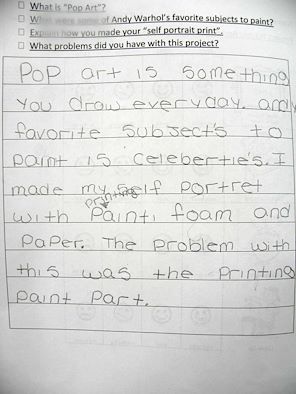 What is "Pop Art"?
What were some of Andy Warhol's favorite subjects to paint?
Explain how you made your "self portrait print".
What problems did you have with this project?
Pop art is something
you draw everyday. andy
favorite subject's to
paint is celebertie's. I
made my self portret
printing
with Paint, foam and
Paper. The Problem with
this was the Printing
paint Part.